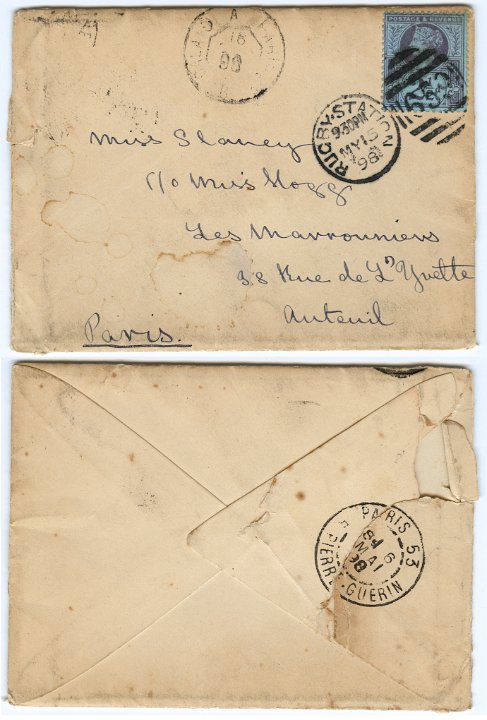 POSTAGE & REVENUE
A
16
98
RUGBY·STATION
9.30PM
MY 15
98
Miss Slaney
c/o Miss Hogg
Les Marronniers
38 Rue de L'Yvette
Auteuil
Paris.
PARIS 53
6
MAI
98
R. PIERRE-GUERIN